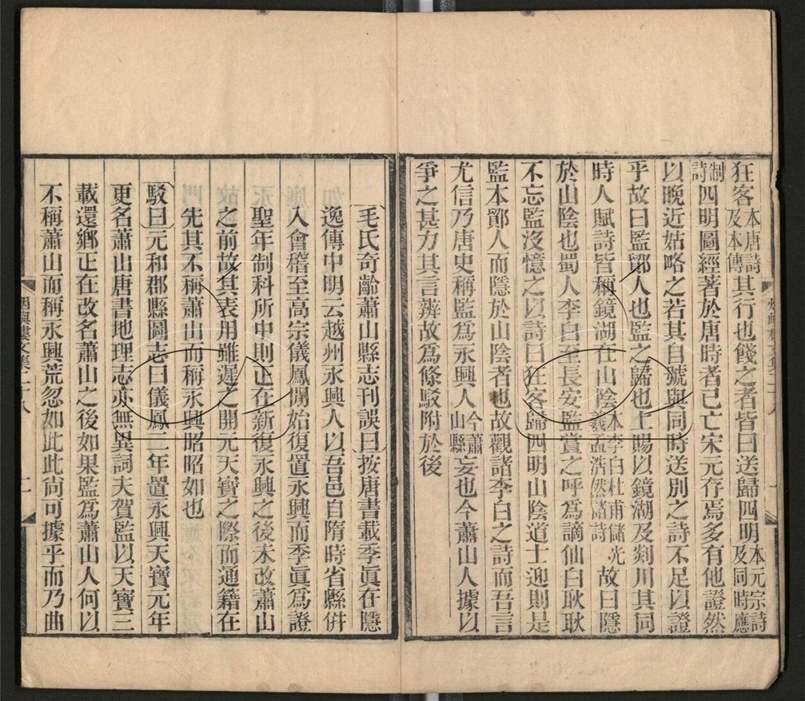 狂客本唐詩及本傳其行也餞之者皆曰送歸四明本元宗詩及同時應
制詩四明圖經著於唐時者已亡宋元存焉多有他證然
以晚近姑略之若其自號與同時送別之詩不足以證
乎故曰監鄞人也監之歸也上賜以鏡湖及剡川其同
時人賦詩皆稱鏡湖在山陰本李白杜甫儲光羲孟浩然諸詩故曰隱
於山陰也蜀人李白至長安監賞之呼爲謫仙白耿耿
不忘監沒憶之以詩曰狂客歸四明山陰道士迎則是
監本鄞人而隱於山陰者也故觀諸李白之詩而吾言
尤信乃唐史稱監爲永興人今蕭山縣妄也今蕭山人據以
爭之甚力其言辨故爲條駁附於後
毛氏奇齡蕭山縣志刊誤曰按唐書載季眞在隱
逸傳中明云越州永興人以吾邑自隋時省縣併
入會稽至高宗儀鳳閒始復置永興而季眞爲證
聖年制科所中則正在新復永興之後未改蕭山
之前故其表用雖遲之開元天寶之際而通籍在
先其不稱蕭山而稱永興昭昭如也
駁曰元和郡縣圖志曰儀鳳二年置永興天寶元年
更名蕭山唐書地理志亦無異詞夫賀監以天寶三
載還鄉正在改名蕭山之後如果監爲蕭山人何以
不稱蕭山而稱永興荒忽如此此尙可據乎而乃曲
烟嶼樓文集二十八